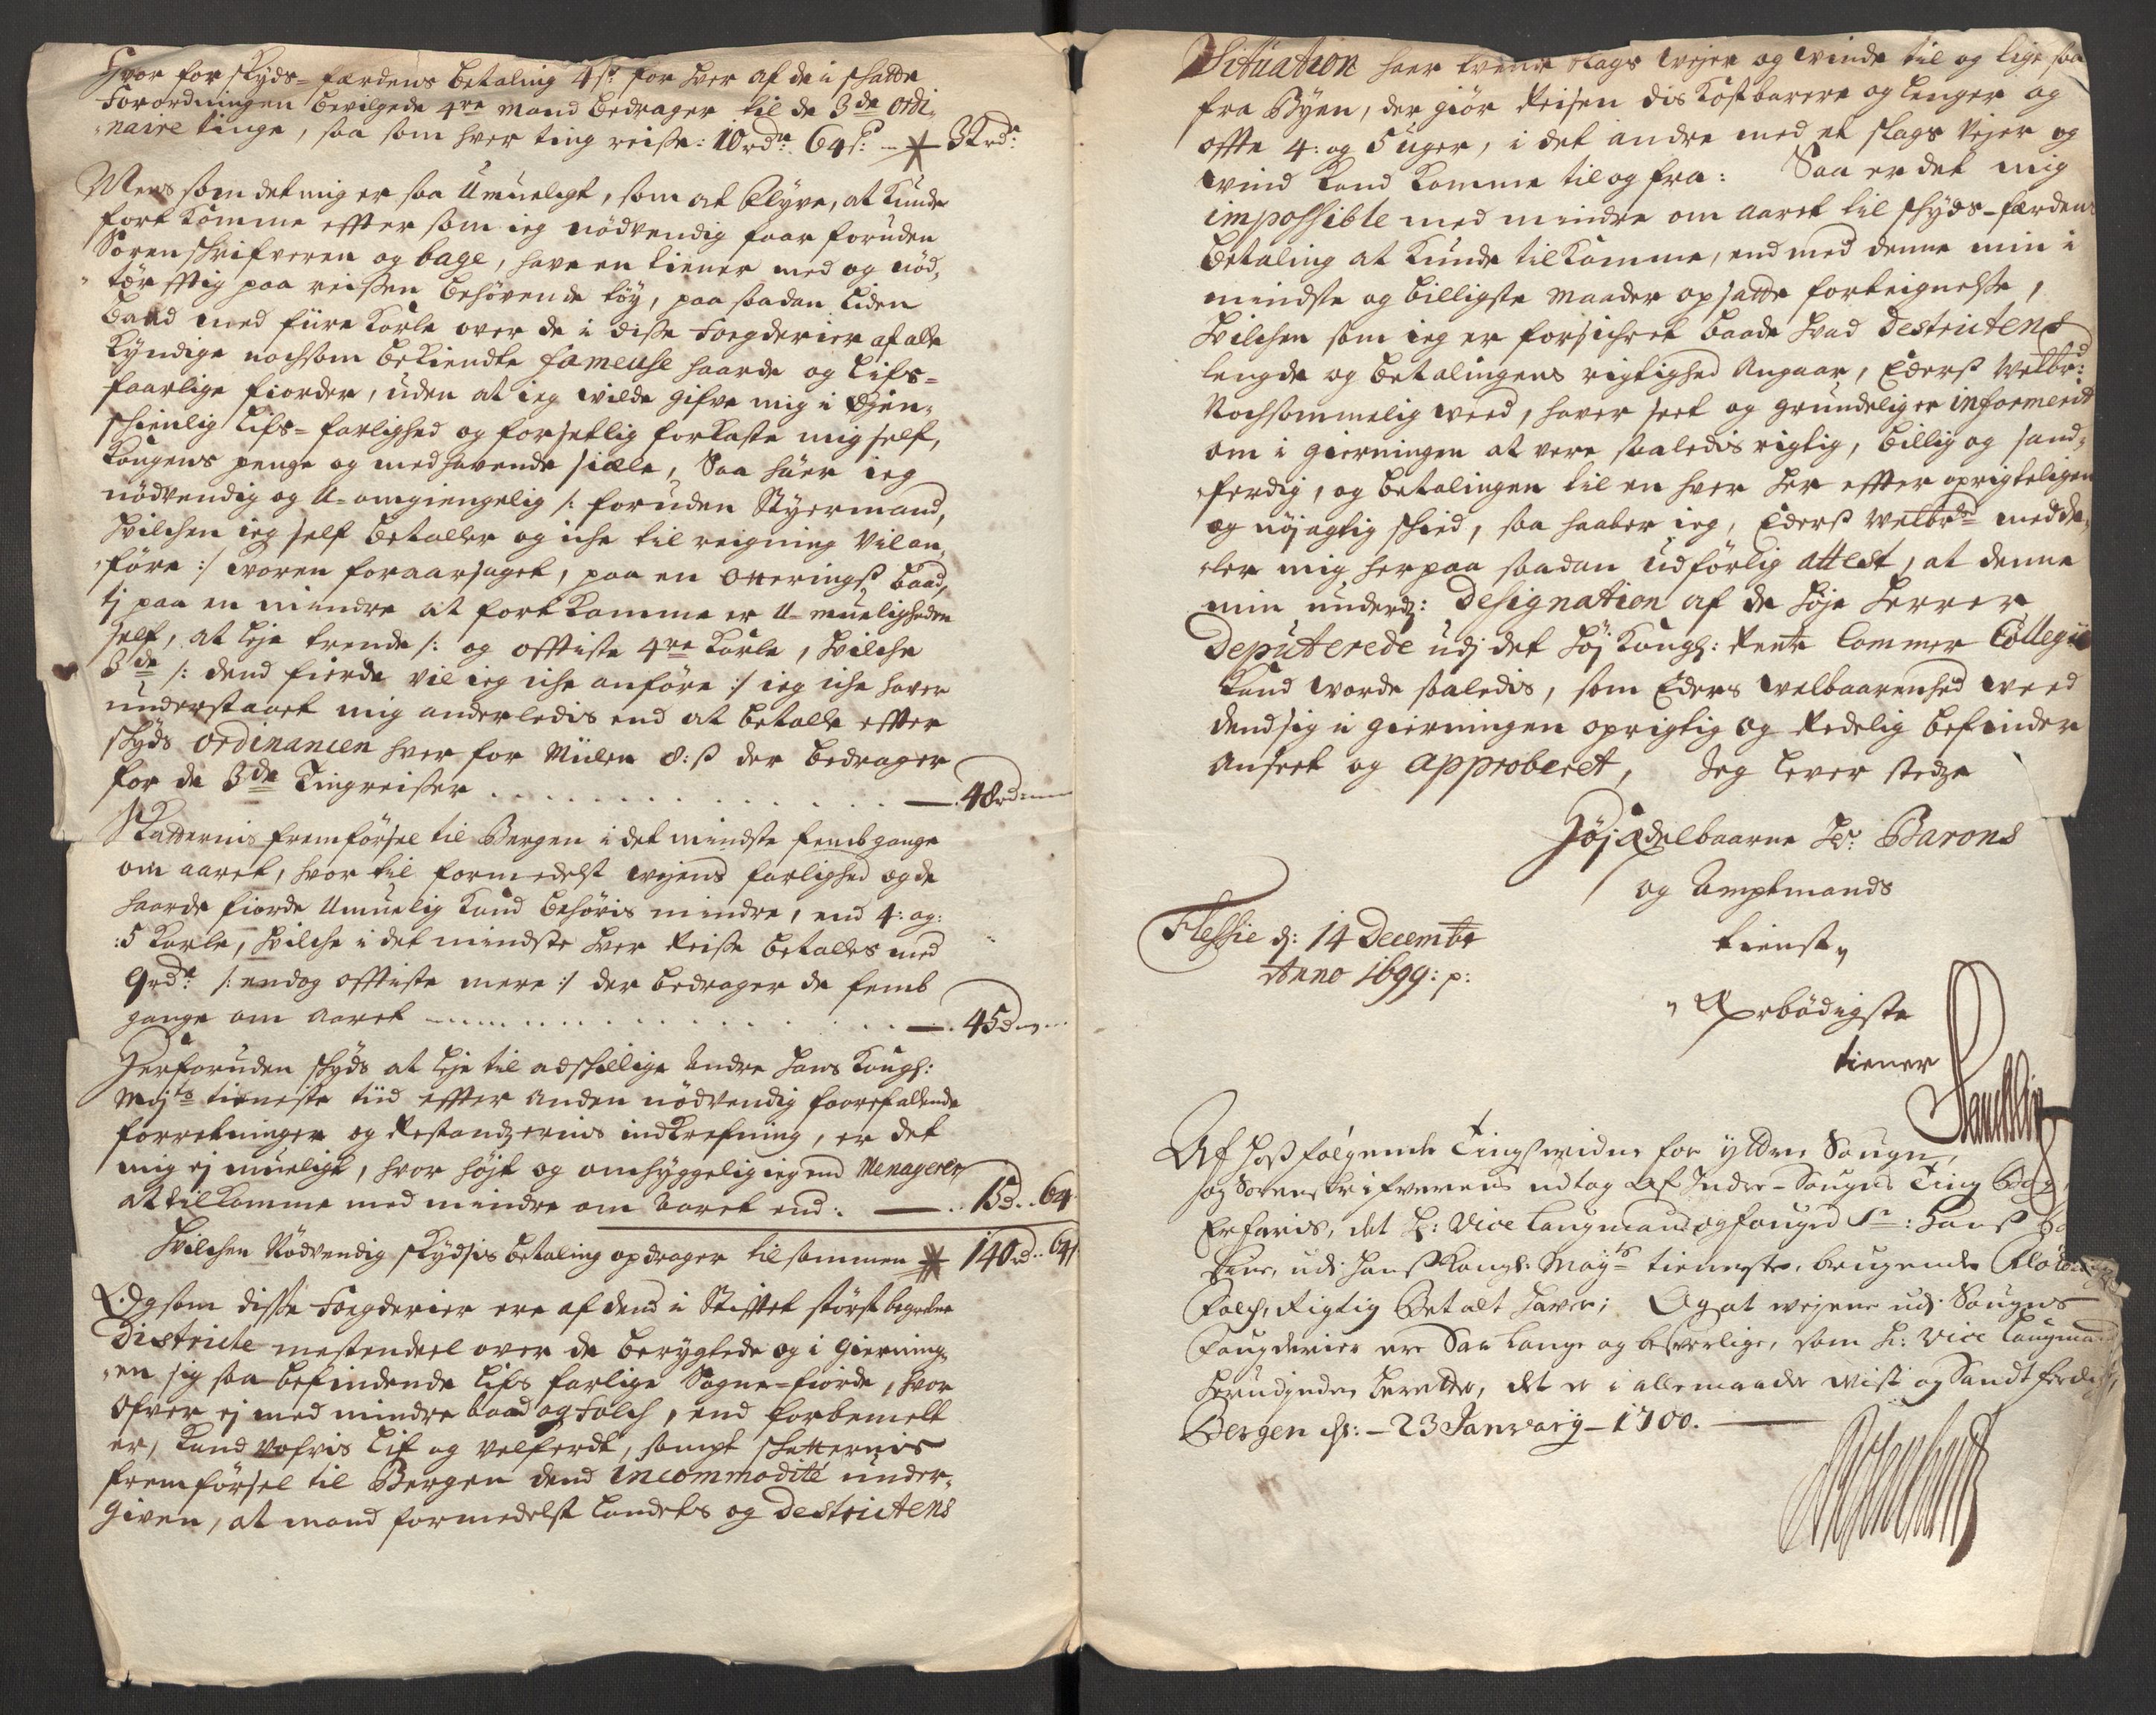 Hvor for skyds-færdens betaling 4 s: for hver af de i skatte
Forordningen bevilgede 4re mand bedrager til de 3de ordi-
naire tinge, saa som hver ting reise: 10 rdr 64 s: — 32 rdr
Mens som det mig er saa Umueligt, som at flyve, at kunde
fort komme effter som ieg nödvendig faar foruden
Sorenskrifveren og bage, have en tiener med og nöd-
törfftig paa reisen behövende töy, paa saadan liden
baad med fiire karle over de i disse Fogderier af alle
kyndige nochsom bekiendte fameuse haarde og lifs-
faarlige fiorder, uden at ieg vilde gifve mig i öyen-
schienlig lifs-farlighed og forsetlig forkaste mig self,
Kongens penge og medhavende siæle, Saa haer ieg
nödvendig og U-omgiengelig /: foruden Styrmand,
hvilchen ieg self betaller og iche til reigning vil an-
före :/ voren foraarsaget, paa en otterings baad,
tj paa en mindre at fortkomme er U-mueligheden
self, at leje trende /: og offtiste 4re karle, hvilche
3de /: dend fierde vil ieg iche anföre :/ ieg iche haver
understaaet mig anderledis end at betalle effter
skyds ordinancen hver for Miilen 8: s der bedrager
for de 3de Tingreiser . . . . . . — 48 rd:
Skatternis fremförsel til Bergen i det mindste femb gange
om aaret, hvor til formedelst vejens farlighed og de
haarde fiorde Umuelig kand behövis mindre, end 4: og:
:5 karle, hvilche i det mindste hver Reise betales med
9 rdr /: endog offtiste mere :/ der bedrager de femb
gange om aaret . . . . . . — 45 d
Herforuden skyds at leje til adskillige andre Hans Kongl:
Mayts tieniste tiid effter anden nödvendig foorefalende
forretninger og Restandzernis indkrefning, er det
mig ej mueligt, hvor höjt og omhyggelig ieg end Menagerer,
at tilkomme med mindre om aaret end: — 15 d.. 64
Hvilchen Nödvendig skydsis betaling opdrager tilsammen 140 rd.. 64 s
Og som disse Fogderier ere af dend i Stifftet störst begrebne
Districte mestendeel over de berygtede og i gierning-
en sig saa befindende lifs farlige Sogne-fiorde, hvor
ofver ej med mindre baad og folch, end forbemelt
er, kand vofvis lif og velferdt, sampt skatternis
fremförsel til Bergen dend incommodité under-
given, at mand formedelst landets og destrictens
Situation haer tvende slags vejer og vinde til og lige saa
fra Byen, der giör Reisen dis kostbarere og lenger og
offte 4: og 5 uger, i det andre med et slags vejer og
vind kand komme til og fra: Saa er det mig
impossible med mindre om aaret til skyds-færdens
betaling at kunde tilkomme, end med denne min i
mindste og billigste maader opsatte forteignelse,
hvilchen som ieg er forsichret baade hvad destrictens
lengde og betalingens rigtighed angaar, Eders Velbrd:
Nochsommelig veed, haver seet og grundelig er informerit
om i gierningen at vere saaledis rigtig, billig og sand-
ferdig, og betalingen til en hver her effter oprigteligen
og nöjagtig skied, saa haaber ieg, Eders Velbrd meddee-
ler mig herpaa saadan udförlig attest, at denne
min underd: designation af de höje herrer
Deputerede udj det höj Kongl: Rente Cammer Collegie
kand vorde saaledis, som Eders velbaarenhed veed
dend sig i gierningen oprigtig og Redelig befinder
anseet og approberet, Jeg lever stedze
Höj-Ædelbaarne Hr. Barons
og Amptmands
tienst-
Flessie d: 14 Decembr
Anno 1699: p:
Ærbödigste
tiener
Af hossfölgende Tingsvidne for yttre Sougn,
og Sorenskrifverens udtog Af Indre-Sougns Ting Bog,
Erfaris, det H: Vice Laugmand og fouged Sr: Hans
udi Hans Kongl: Mayts tieneste, brugende
Folch, Rigtig Betalt haver; Og at vejene udj Sougns
Fougderier ere saa lange og besverlige, som H: Vice Laugmand
herudinden beretter, det er i alle maader vist og Sandtferdigt,
Bergen d: – 23 January – 1700.